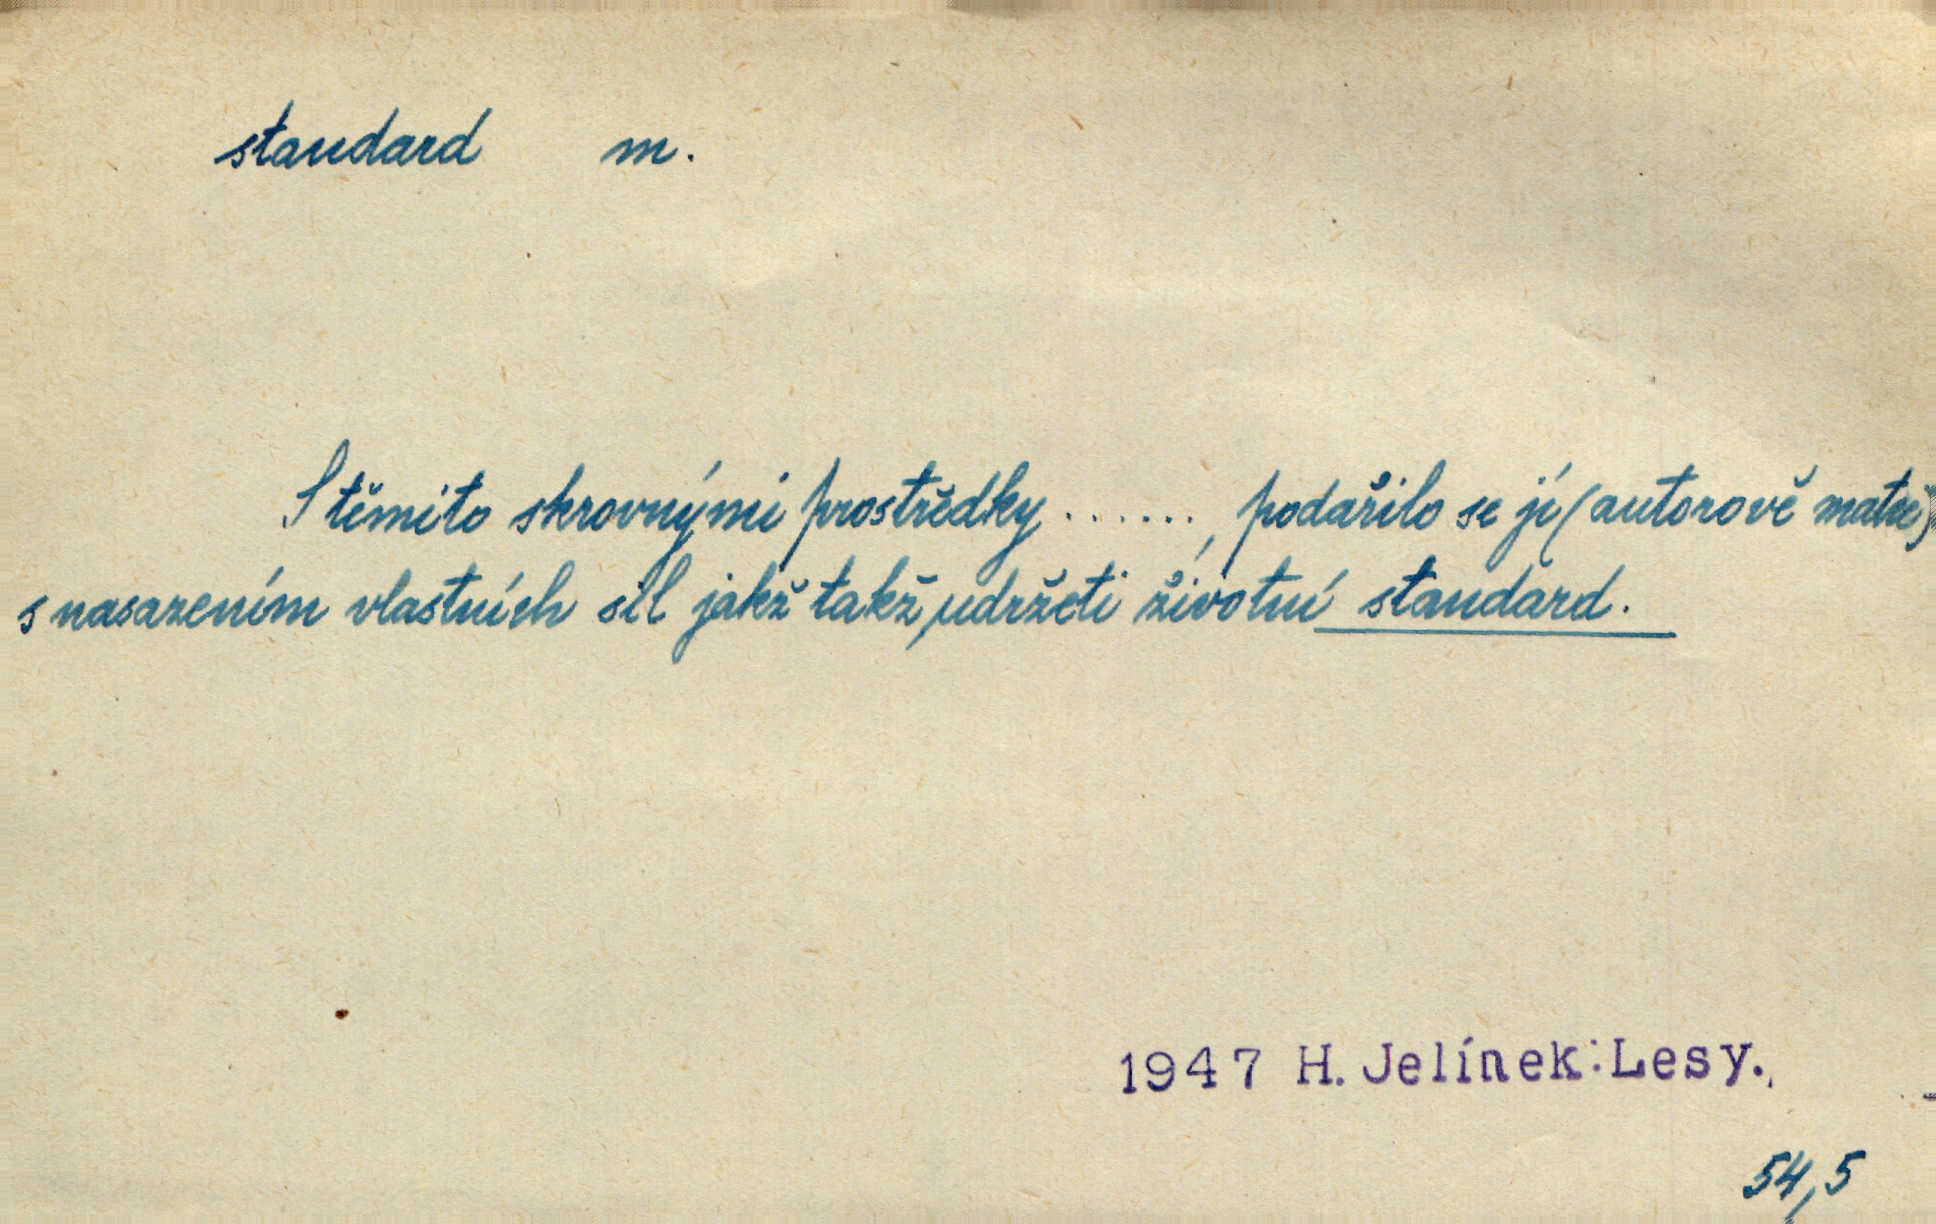 standard m.
S těmito skrovnými prostředky ......., podařilo se jí (autorově matce)
s nasazením vlastních sil jakž takž udržeti životní standard.
1947 H. Jelínek: Lesy.,
54,5